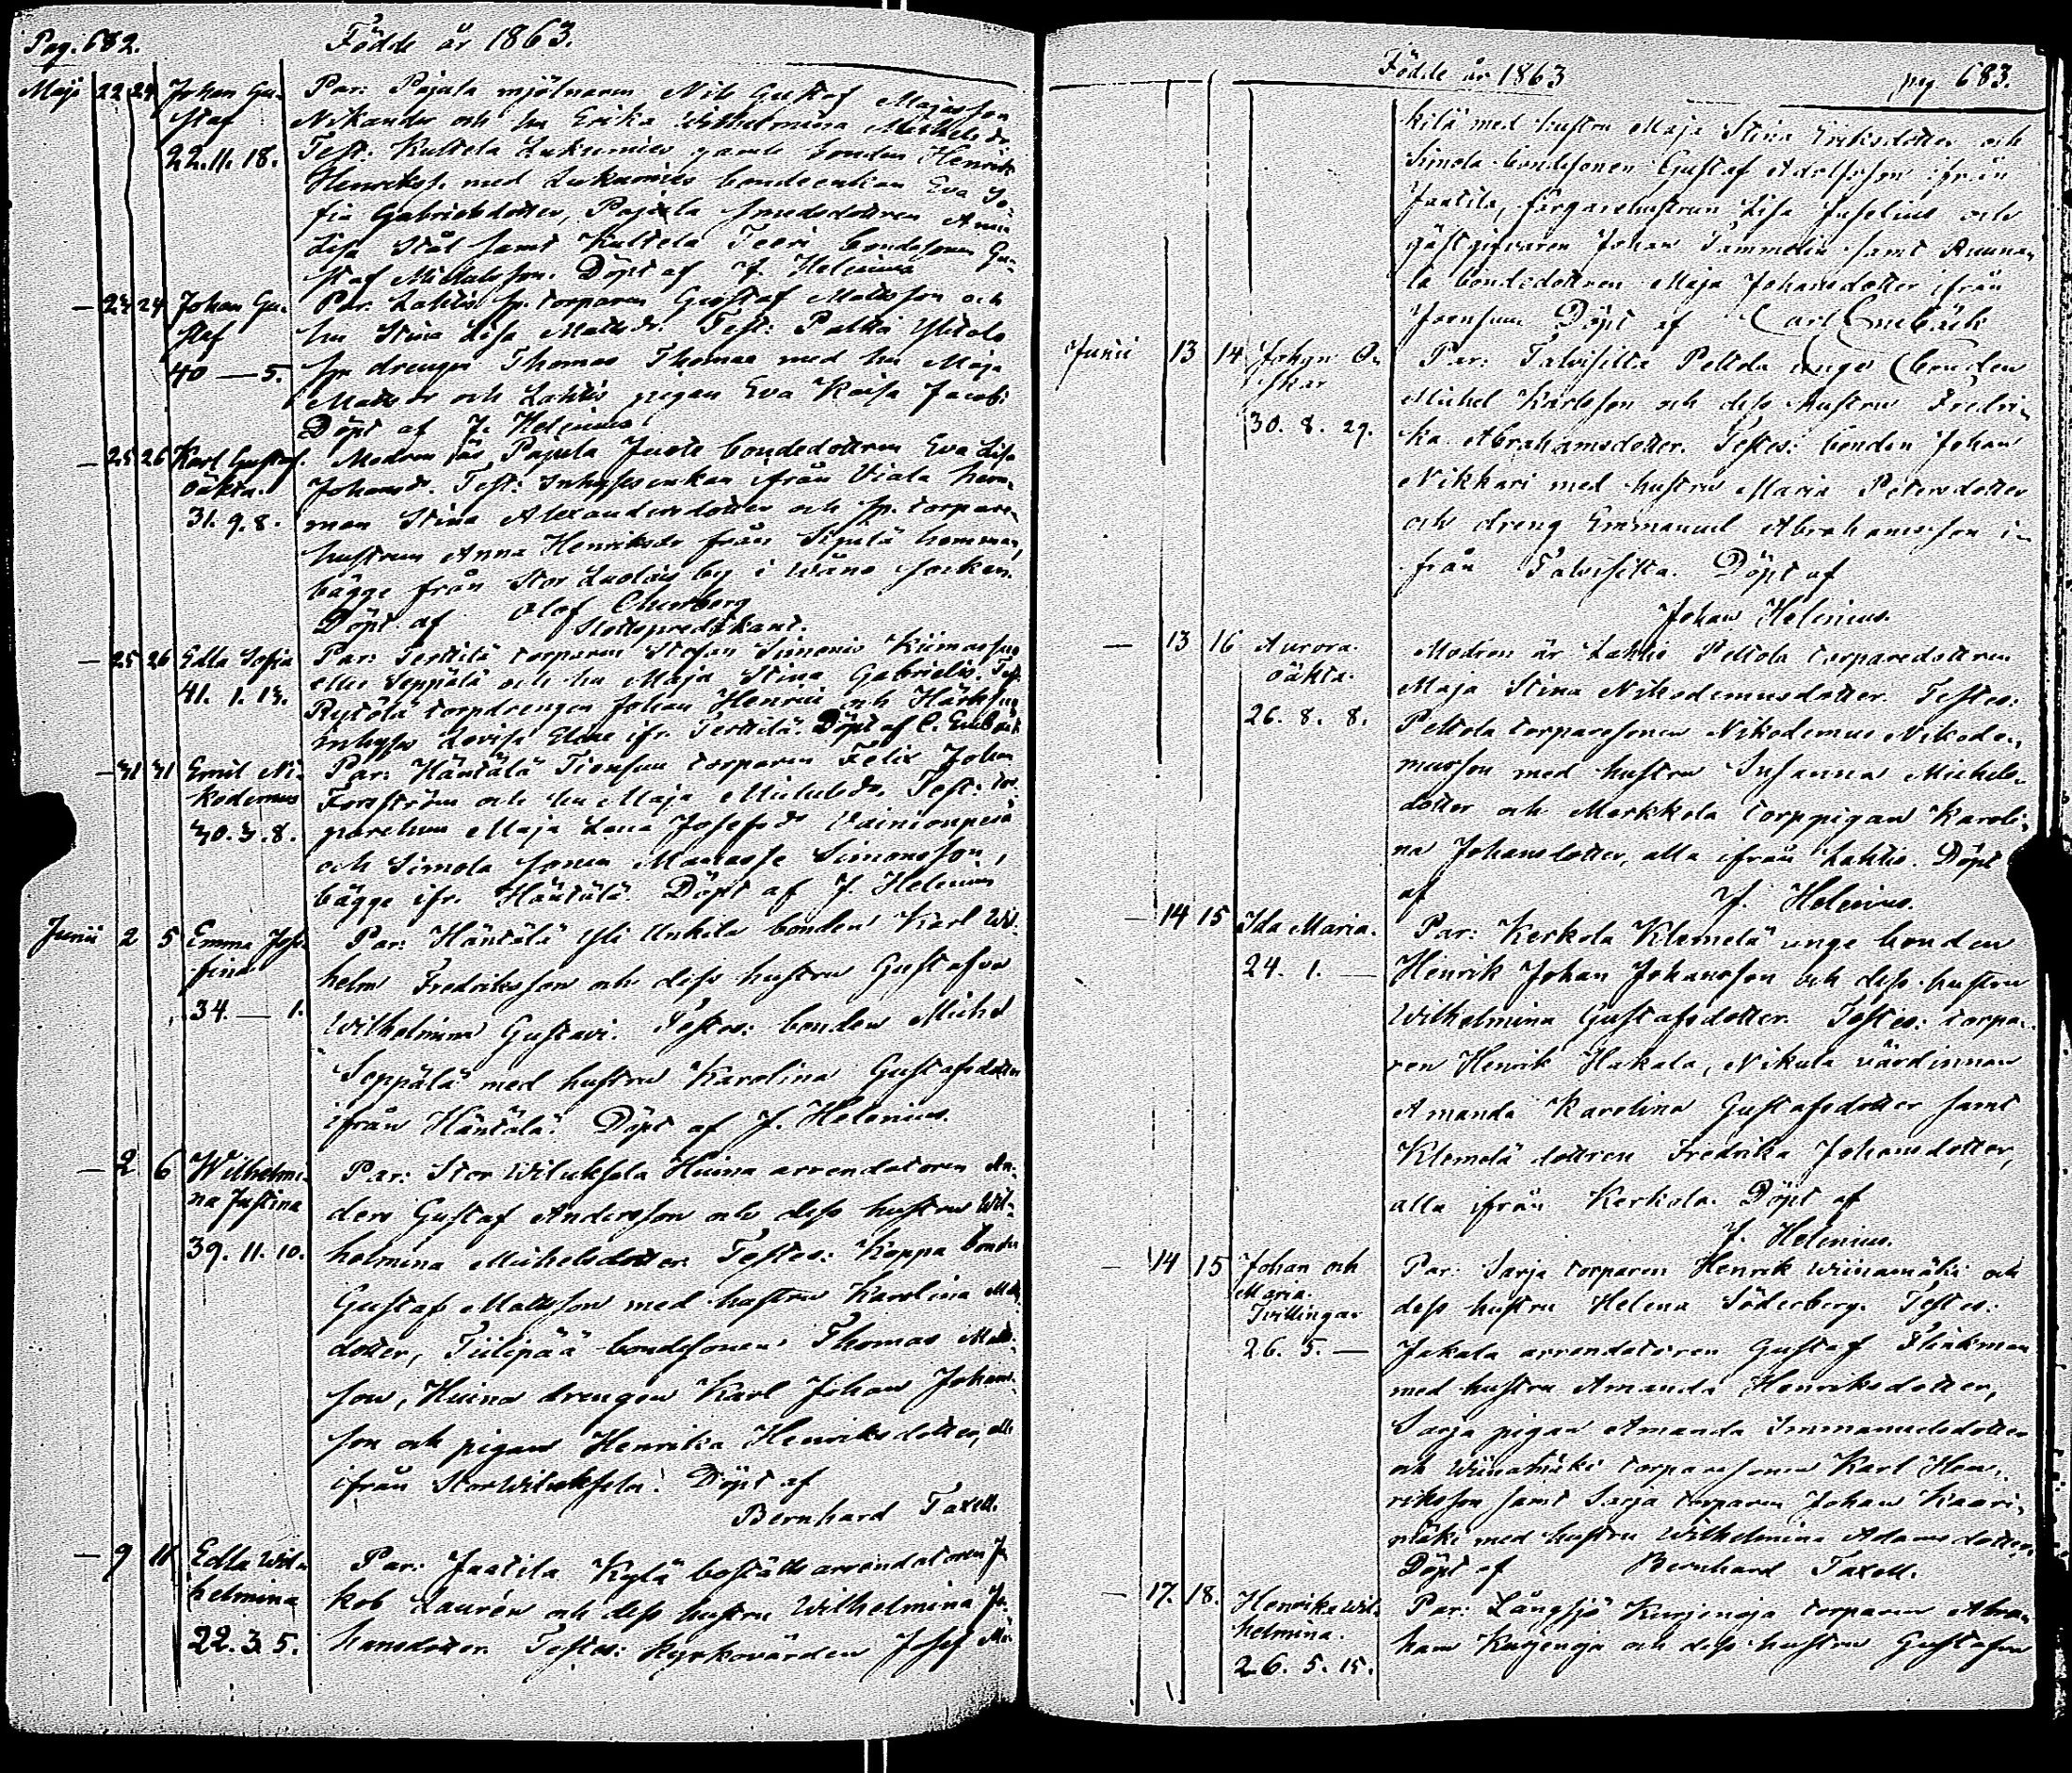 Pag. 682.
Födde år 1863.
Maji 22 24 Johan Gu- Par: Pajula mjölnaren Nils Gustaf Majasson
staf Nikander och hu Erika Wilhelmina Michelsdr
22. 11. 18. Test: Kultela Lukumies gamle bonden Henrik
Henrikss. med Lukumies bondeenkan Eva So-
fia Gabrielsdotter, Pajula smedsdottren Anna
Lisa Stål samt Kultela Teeri bondesonen Gu-
staf Michelsson. Döpt af J. Helenius
— 23 24 Johan Gu- Par. Lahtis sp. torparen Gustaf Mattsson och
staf hu Stina Lisa Mattsdr. Test: Paltta Ylitalo
40 — 5. sp drengen Thomas Thomae med hu Maja
Mattsdr och Lahtis pigan Eva Kaisa Jacobi
Döpt af J. Helenius
— 25 26 Karl Gustaf. Modren är Pajula Juste bondedottren Eva Lisa
oäkta. Johansdr. Test: Inhyses enkan ifrån Viala hem-
31. 9. 8. man Stina Alexandersdotter och sp. torpare-
hustrun Anna Henriksdr från Sipilä hemman,
bägge från Stor Luolais by i Wåno socken.
Döpt af Olof Churberg
Slottspredikant.
— 25 26 Edla Sofia Par: Terttilä torparen Stefan Simonis Kiimassuo
41. 1. 13. eller Seppälä och hu Maja Stina Gabrielis. Test:
Rytölä torpdrengen Johan Henrici och Härksuo
inhyses Lovisa Eliae ifr. Terttilä. Döpt af C. Enebäck
— 31 31 Emil Ni- Par: Häntälä Tiensuu torparen Felix Johan
kodemus Forsström och hu Maja Michelsdr. Test: tor-
30. 3. 8. parehun Maja Lena Josefsdr Vainionpää
och Simola sonen Manasse Simonsson,
bägge ifr. Häntälä. Döpt af J. Helenius
Junii 2 5 Emma Jose- Par: Häntälä Yli Unkila bonden Karl Wil-
fina helm Fredriksson och dess hustru Gustafva
34. — 1. Wilhelmina Gustavi. Testes: bonden Michel
Seppälä med hustru Karolina Gustafsdotter
ifrån Häntälä. Döpt af J. Helenius.
— 2 6 Wilhelmi- Par: Stor Wiluksela Huina arrendatoren An-
na Justina ders Gustaf Andersson och dess hustru Wil-
39. 11. 10. helmina Michelsdotter. Testes: Koppa bonden
Gustaf Mattsson med hustru Karolina Matts-
dotter, Tiilipää bondesonen Thomas Matts-
son, Huina drengen Karl Johan Johans-
son och pigan Henrika Henriksdotter, alla
ifrån Stor Wiluksela. Döpt af
Bernhard Taxell.
— 9 11 Edla Wil- Par: Jaatila Kylä boställs arrendatoren Ja-
helmina kob Laurén och dess hustru Wilhelmina Jo-
22. 3. 5. hansdotter. Testes: kyrkovärden Josef Mä-
Födde år 1863
pag 683.
kilä med hustru Maja Stina Eriksdotter och
Simola bondesonen Gustaf Adolfsson ifrån
Jaatila, färgarehustrun Lisa Juselius och
gästgifvaren Johan Tammelin samt Anuna-
la bondedottren Maja Johansdotter ifrån
Joensuu Döpt af Carl Enebäck
Junii 13 14 Johan O- Par: Talvisilta Peltola unge bonden
skar Michel Karlsson och dess hustru Fredri-
30. 8. 29. ka Abrahamsdotter. Testes: bonden Johan
Nikkari med hustru Maria Petersdotter
och dreng Emmanuel Abrahamsson i-
från Talvisilta. Döpt af
Johan Helenius.
— 13 16 Aurora. Modren är Lahtis Peltola torparedottren
oäkta. Maja Stina Nikodemusdotter. Testes:
26. 8. 8. Peltola torparesonen Nikodemus Nikode-
musson med hustru Susanna Michels-
dotter och Markkola torppigan Karoli-
na Johansdotter, alla ifrån Lahtis. Döpt
af J. Helenius.
— 14 15 Ida Maria. Par: Kerkola Klemelä unge bonden
24. 1. — Henrik Johan Johansson och dess hustru
Wilhelmina Gustafsdotter. Testes: torpa-
ren Henrik Hakala, Nikula värdinnan
Amanda Karolina Gustafsdotter samt
Klemelä dottren Fredrika Johansdotter,
alla ifrån Kerkola. Döpt af
J. Helenius.
— 14 15 Johan och Par: Sarja torparen Henrik Wiinamäki och
Maria. dess hustru Helena Söderberg. Testes:
Tvillingar
26. 5. — Jakala arrendatoren Gustaf Flinkman
med hustru Amanda Henriksdotter,
Sarja pigan Amanda Immanuelsdotter
och Wiinamäki torparesonen Karl Hen-
riksson samt Sarja torparen Johan Kaari-
mäki med hustru Wilhelmina Adamsdotter,
Döpt af Bernhard Taxell.
— 17. 18. Henrika Wil- Par: Långsjö Kurjenoja torparen Abra-
helmina. ham Kurjenoja och dess hustru Gustafva
26. 5. 15.